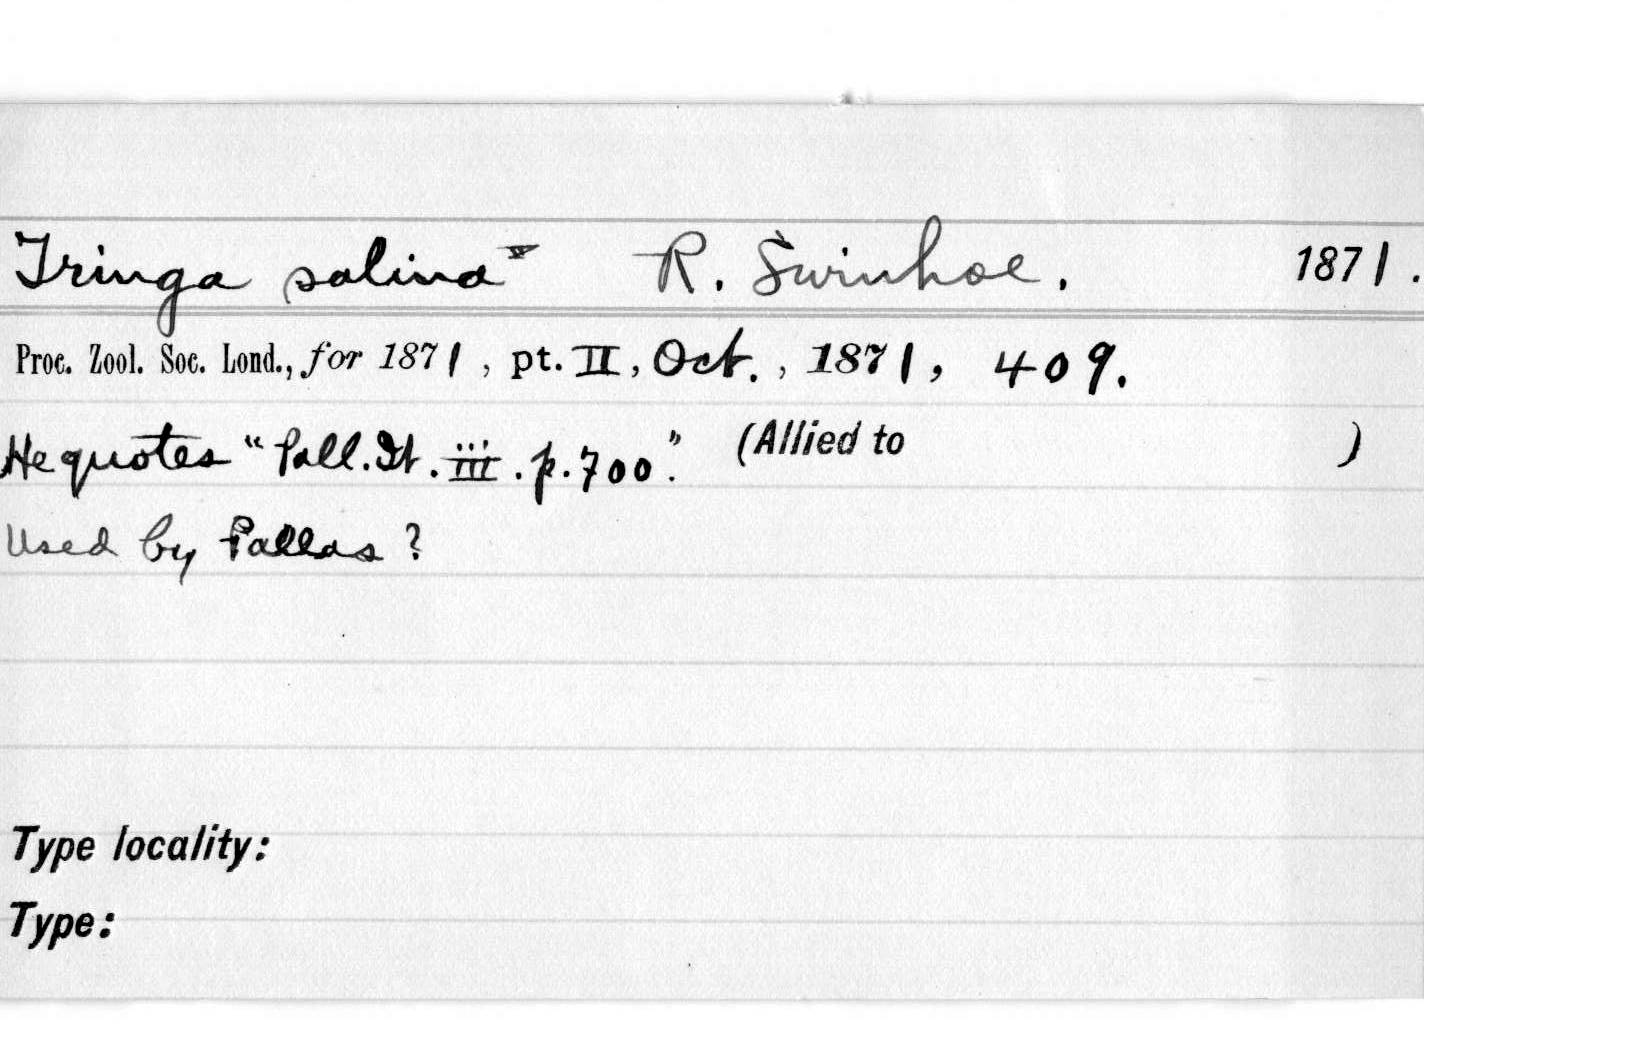 Tringa salina R. Swinhoe. 1871.
Proc. Zool. Soc. Lond., for 1871, pt. II, Oct., 1871, 409.
He quotes "Pall. It. iii. p. 700". (Allied to )
Used by Pallas ?
Type locality:
Type: